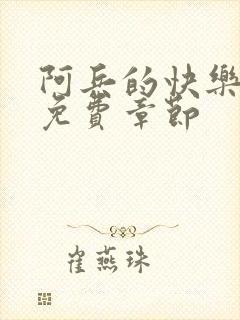 阿兵的快樂
免費章節
崔燕珠